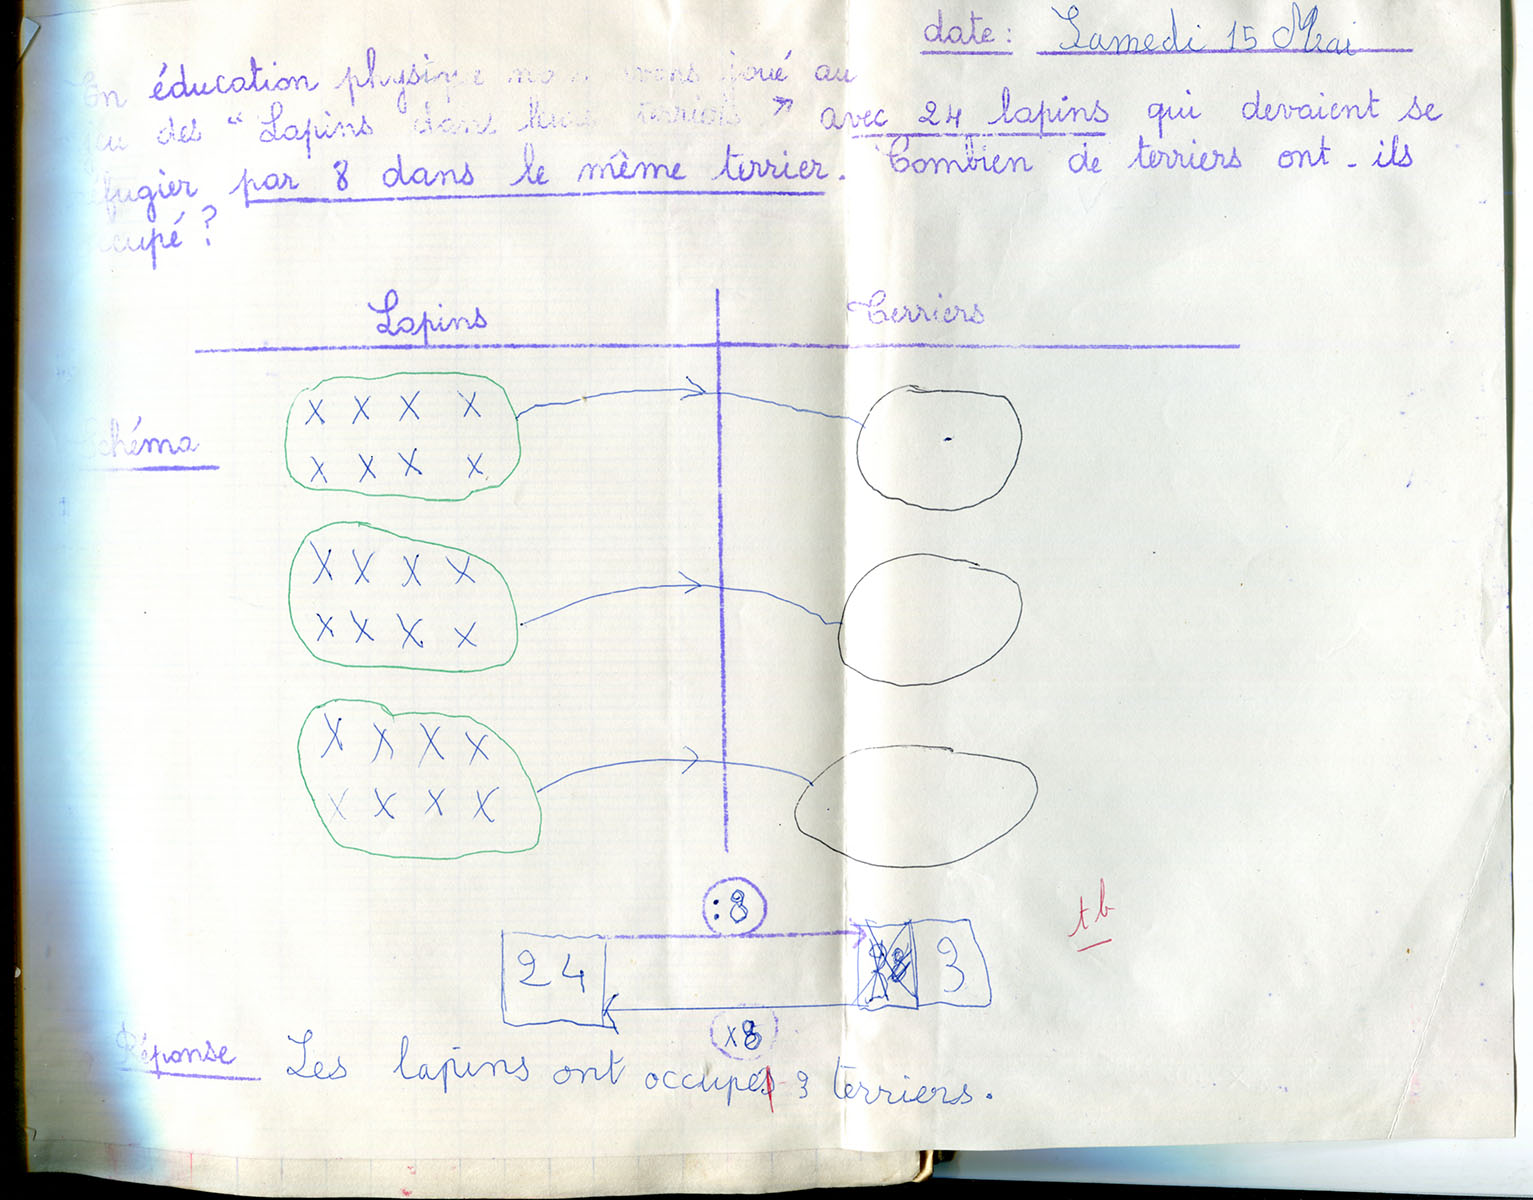 date : Samedi 15 Mai
En éducation physique nous avons joué au
jeu des "Lapins dans leurs terriers" avec 24 lapins qui devaient se
réfugier par 8 dans le même terrier. Combien de terriers ont-ils
occupé ?
Lapins Terriers
X X X X
X X X X
Schéma
X X X X
X X X X
X X X X
X X X X
:8
tb
24 3
x8
Réponse Les lapins ont occupés 3 terriers.